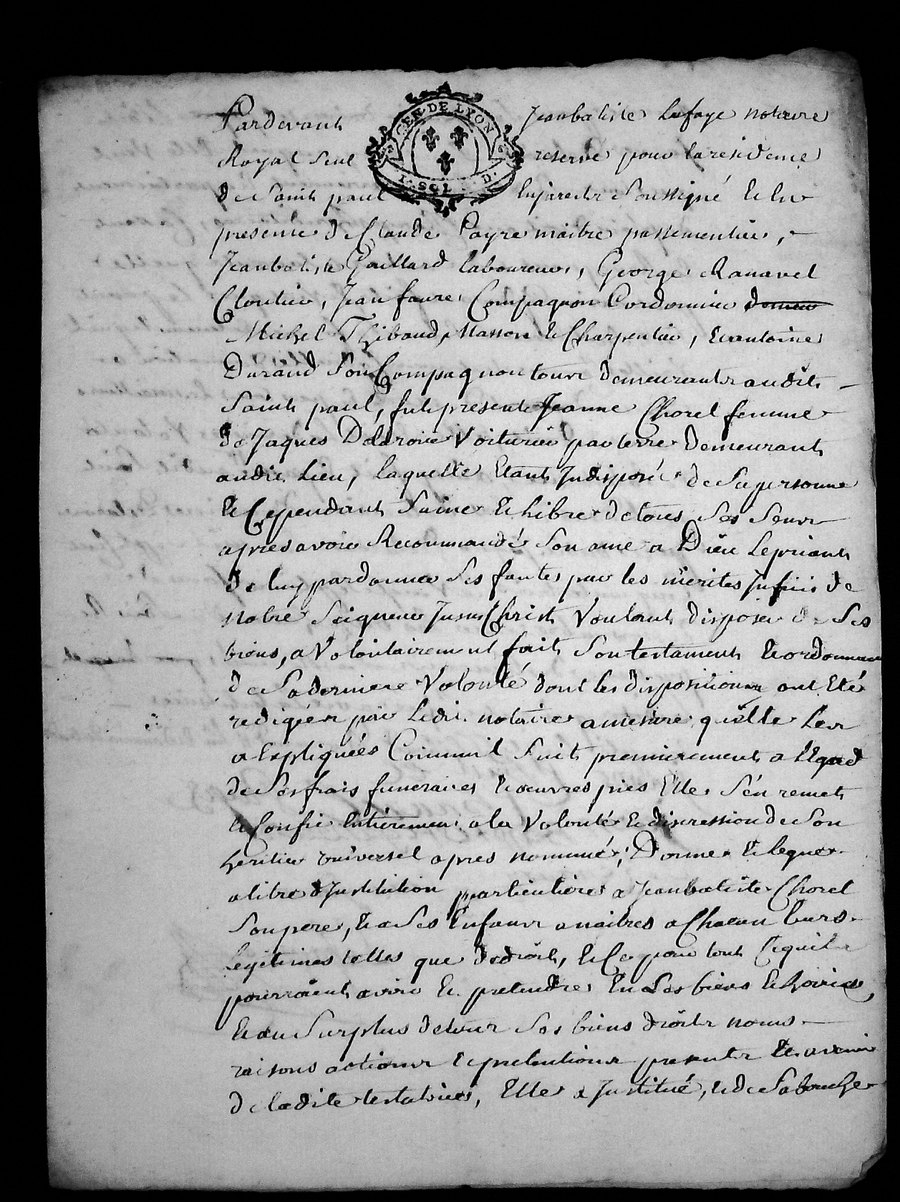 Pardevant Jeanbatiste Lafaye notaire
GEN. DE LYON
1. SOL D.
Royal seul reservé pour la residence
de saint paul en jarest soussigné et en
presence de Claude Payre maitre passementier,
Jeanbatiste Gaillard laboureur, George Ranavel
Cloutier, Jean faure Compagnon Cordonnier
Michel Thibaud, Masson et Charpentier, et antoine
Durand son Compagnon tour demeurant audit
Saint paul, fut presente Jeanne Chorel femme
de Jaques Delaroire Voiturier par terre demeurant
audit Lieu, laquelle Etant Indisposée de sa personne
et Cependant saine et Libre de tous ses sens
apres avoir Recommandé son ame a Dieu Le priant
de luy pardonner ses fautes par les merites Infinis de
notre seigneur Jesus Christ Voulant disposer de ses
biens, a Volontairement fait son testament et ordonnance
de sa derniere Volonté dont les dispositions ont Eté
redigées par Ledit notaire a mesure qu'elle Les
a Expliquées Comme il suit premierement a l'egard
de ses frais funeraires et oeuvres pies Elle s'en remet
et Confie Entierement a la Volonté et discression de son
heritier universel apres nommé; Donne et legue
a titre d'Institution particuliere a Jeanbatiste Chorel
son pere, et a ses Enfans a naitres a Chacun leurs
legitimes telles que de droit, et Ce pour tout Ce qu'il
pourroient avoir et pretendre En ses biens et hoirie,
et au surplus de tous ses biens droits noms
raisons actions et pretentions presents et avenir
de ladite testatrice, Elle a Institué, et de sa bouche